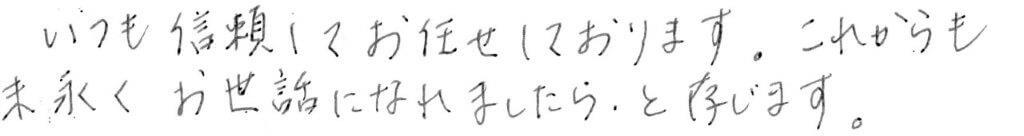 いつも信頼してお任せしております。これからも
末永くお世話になれましたら、と存じます。